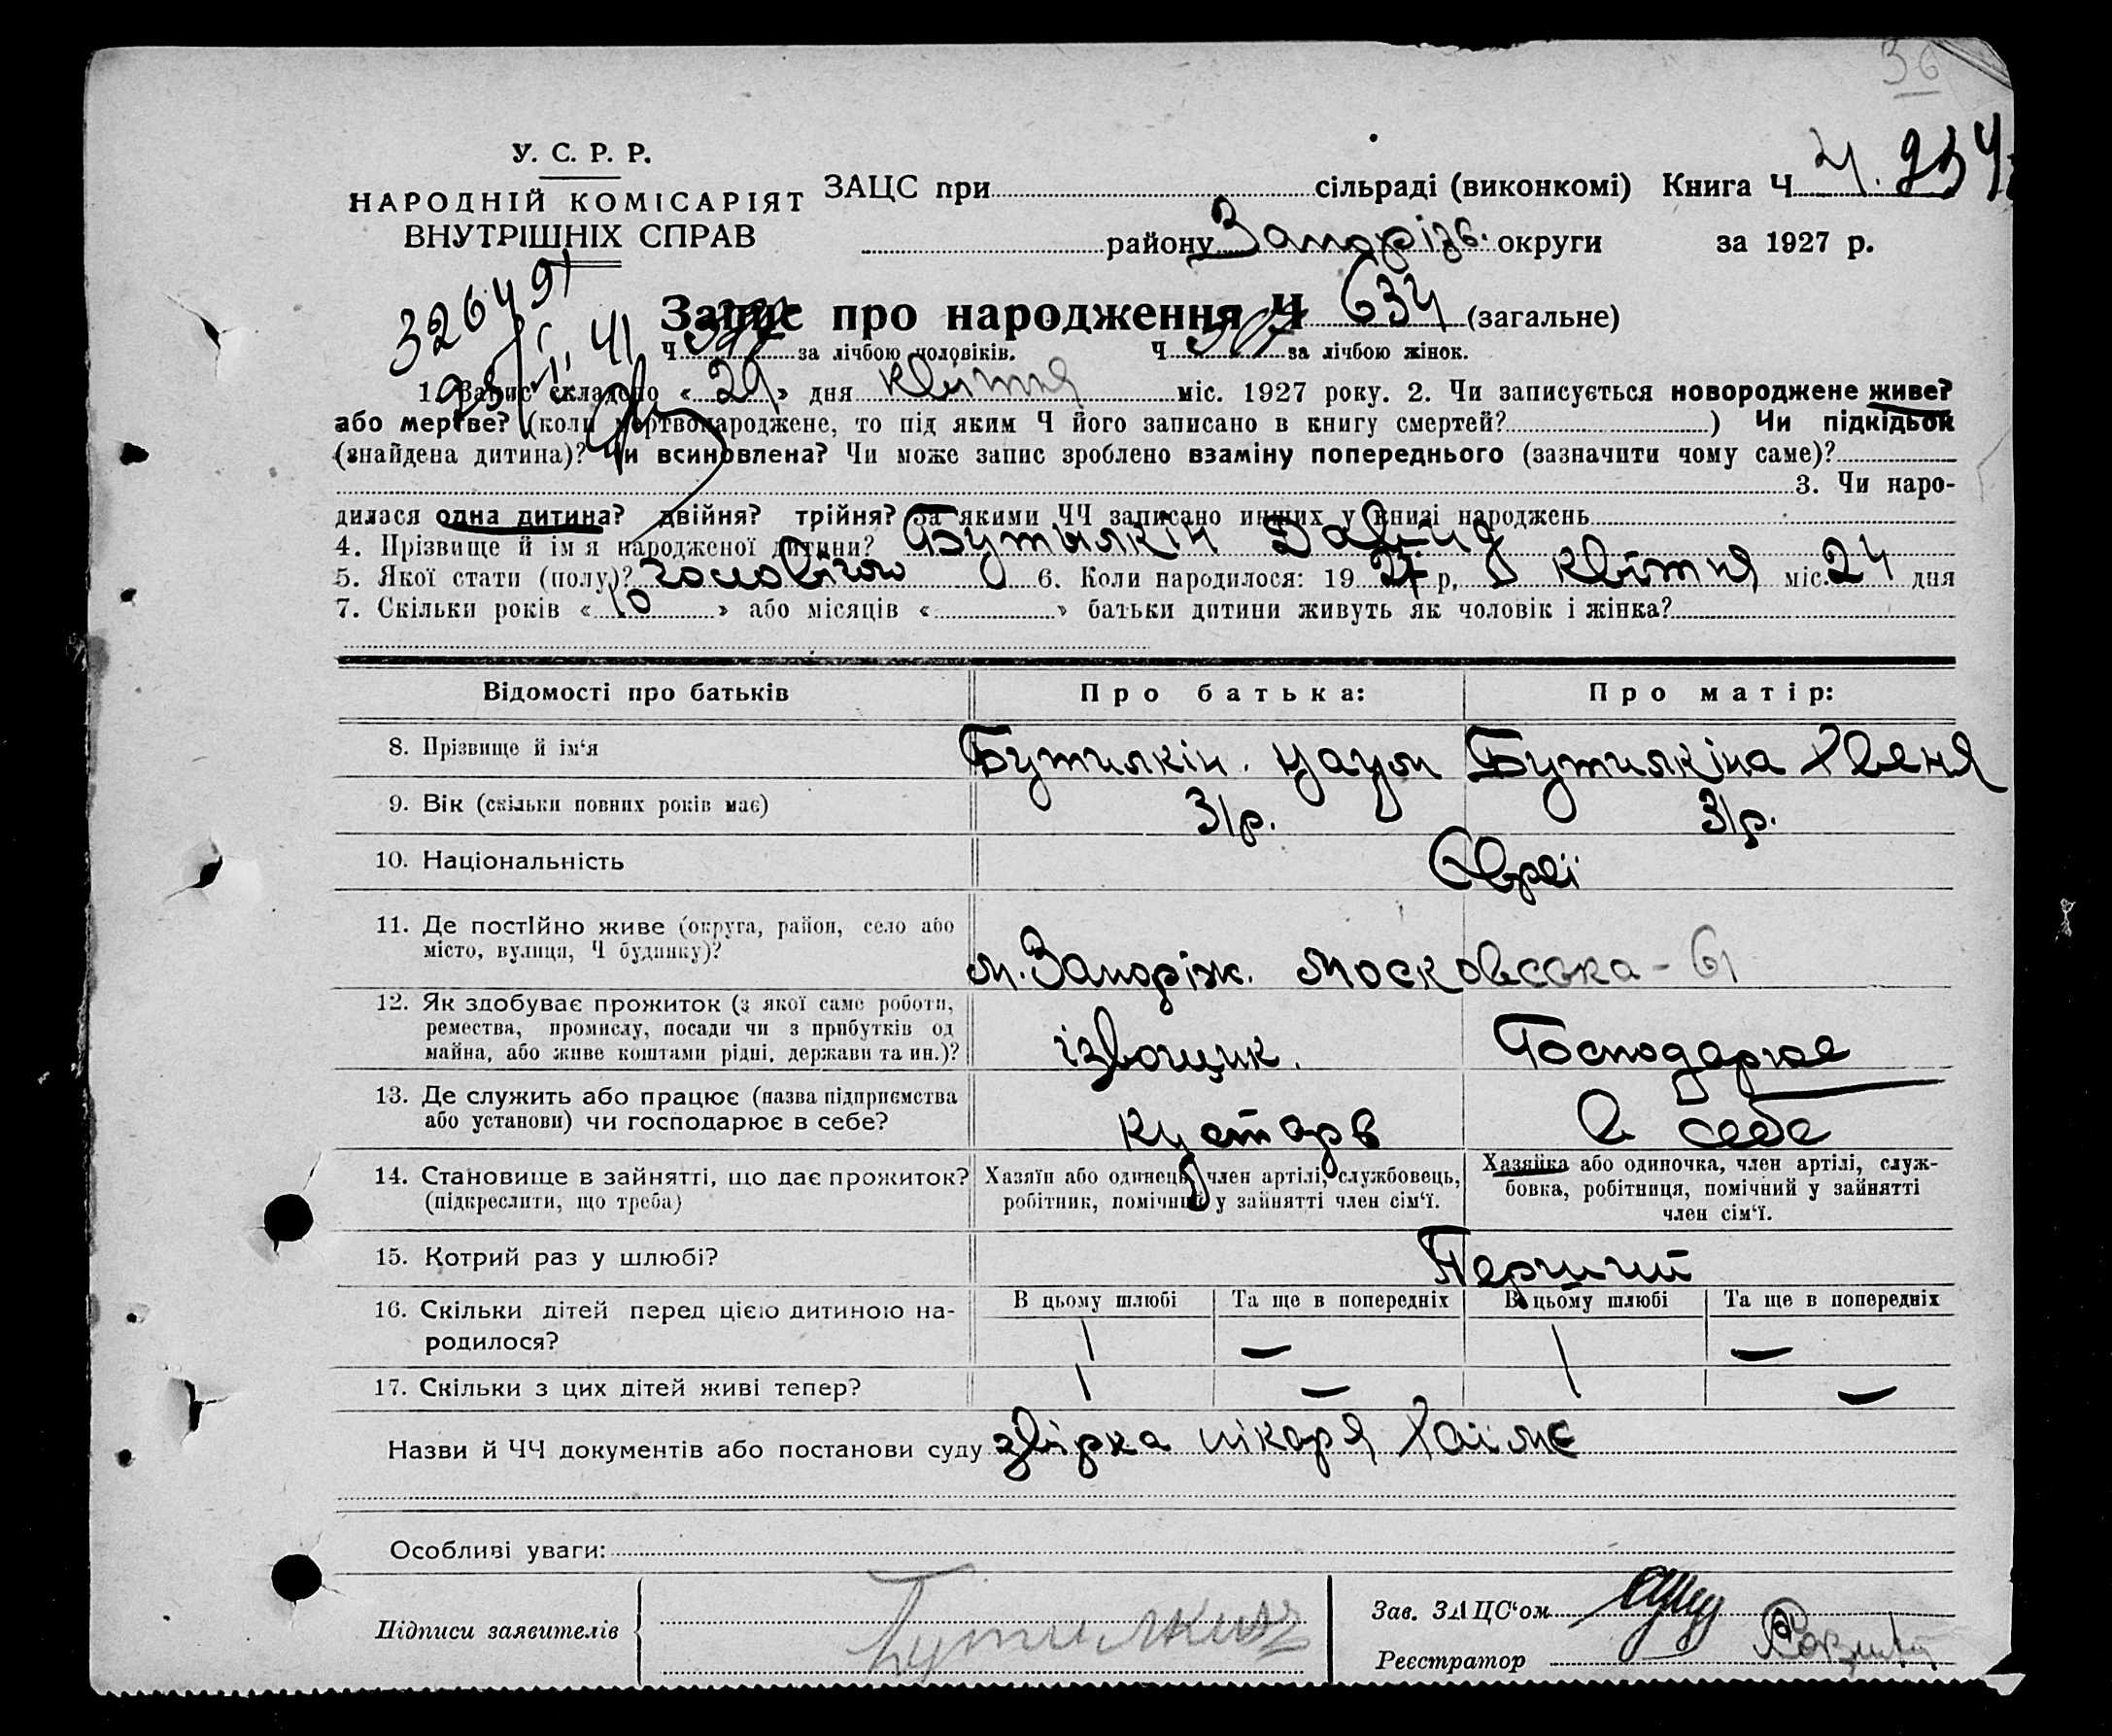 36
У. С. Р. Р.
НАРОДНІЙ КОМІСАРІЯТ
ВНУТРІШНІХ СПРАВ
ЗАЦС при сільраді (виконкомі) Книга Ч
району Запорізь. округи за 1927 р.
Запис про народження Ч 634 (загальне)
Ч за лічбою чоловіків. Ч за лічбою жінок.
1. Запис складено « 29 » дня квітня міс. 1927 року. 2. Чи записується новороджене живе?
або мертве? (коли мертвонароджене, то під яким Ч його записано в книгу смертей? ) Чи підкідьок
(знайдена дитина)? Чи всиновлена? Чи може запис зроблено взаміну попереднього (зазначити чому саме)?
3. Чи наро-
дилася одна дитина? двійня? трійня? За якими ЧЧ записано инших у книзі народжень
4. Прізвище й ім'я народженої дитини? Бутылкін Давид
5. Якої стати (полу)? чоловічого 6. Коли народилося: 19 27 р, квітня міс. 24 дня
7. Скільки років « 10 » або місяців « » батьки дитини живуть як чоловік і жінка?
Відомості про батьків Про батька: Про матір:
8. Прізвище й ім'я Бутилкін. Наум Бутилкіна Хвеня
9. Вік (скільки повних років має) 31р. 31р.
10. Національність Євреї
11. Де постійно живе (округа, район, село або
місто, вулиця, Ч будинку)? м. Запоріж. Московська - 61
12. Як здобуває прожиток (з якої саме роботи,
ремества, промислу, посади чи з прибутків од
майна, або живе коштами рідні, держави та ин.)? ізвощик. Господарює
13. Де служить або працює (назва підприємства
або установи) чи господарює в себе? кустарь в себе
14. Становище в зайнятті, що дає прожиток?
(підкреслити, що треба)
Хазяїн або одинець, член артілі, службовець,
робітник, помічний у зайнятті член сім'ї.
Хазяйка або одиночка, член артілі, служ-
бовка, робітниця, помічний у зайнятті
член сім'ї.
15. Котрий раз у шлюбі? Перший
16. Скільки дітей перед цією дитиною на-
родилося?
В цьому шлюбі Та ще в попередніх В цьому шлюбі Та ще в попередніх
1 — 1 —
17. Скільки з цих дітей живі тепер? 1 — 1 —
Назви й ЧЧ документів або постанови суду
Особливі уваги:
Підписи заявителів
Зав. ЗАЦС'ом
Реєстратор